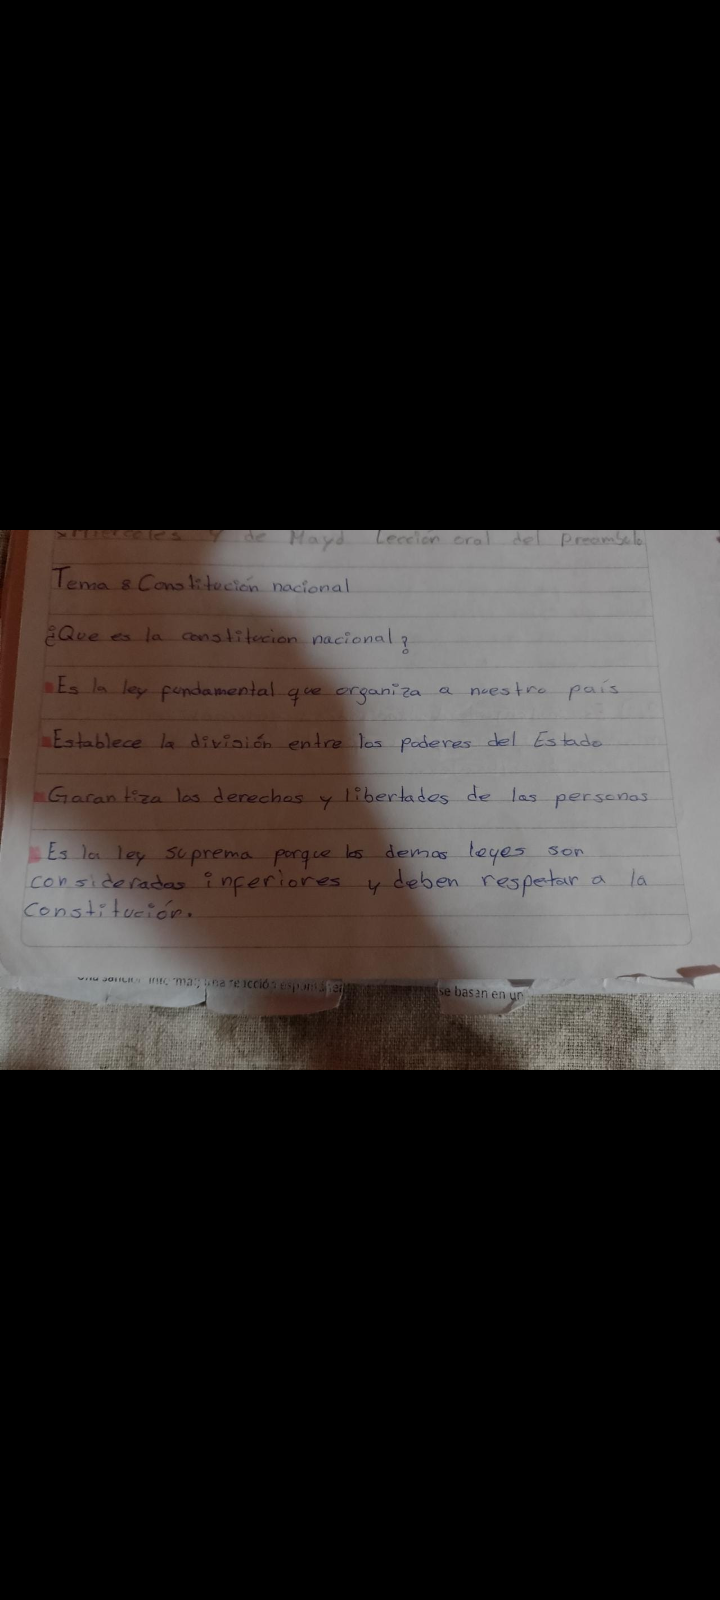 Miercoles 4 de Mayo Lección oral del preambulo
Tema : Constitución nacional
¿Que es la constitucion nacional?
Es la ley fundamental que organiza a nuestro país
Establece la división entre los poderes del Estado
Garantiza los derechos y libertades de las personas
Es la ley suprema porque las demas leyes son
consideradas inferiores y deben respetar a la
Constitución.
se basan en un